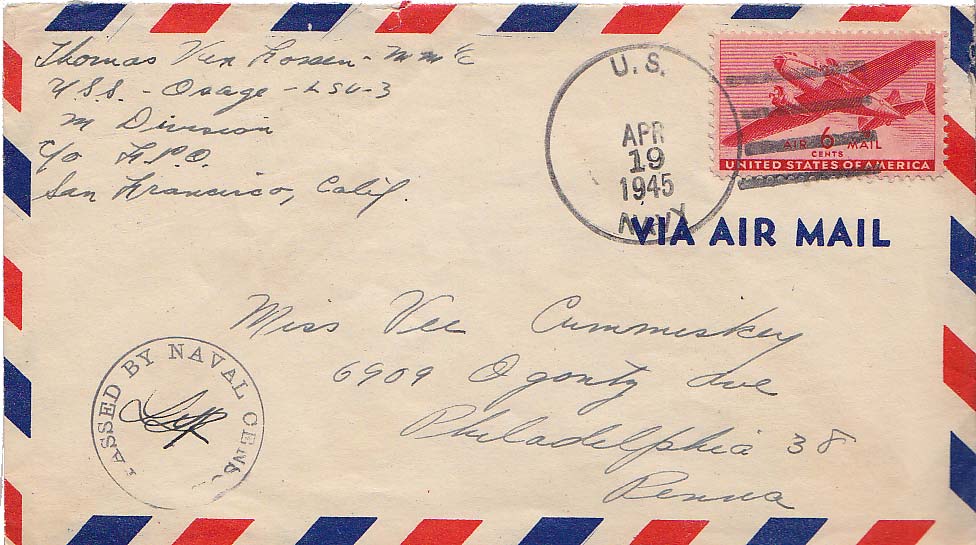 Thomas Van Rossen - M M 1/C
U.S.S. - Osage - LSV-3
M Division
c/o F.P.O.
San Francisco, Calif.
U. S.
APR
19
1945
NAVY
AIR 6 MAIL
CENTS
UNITED STATES OF AMERICA
VIA AIR MAIL
Miss Vee Cummiskey
6909 Ogontz Ave
Philadelphia 38
Penna
PASSED BY NAVAL CENS